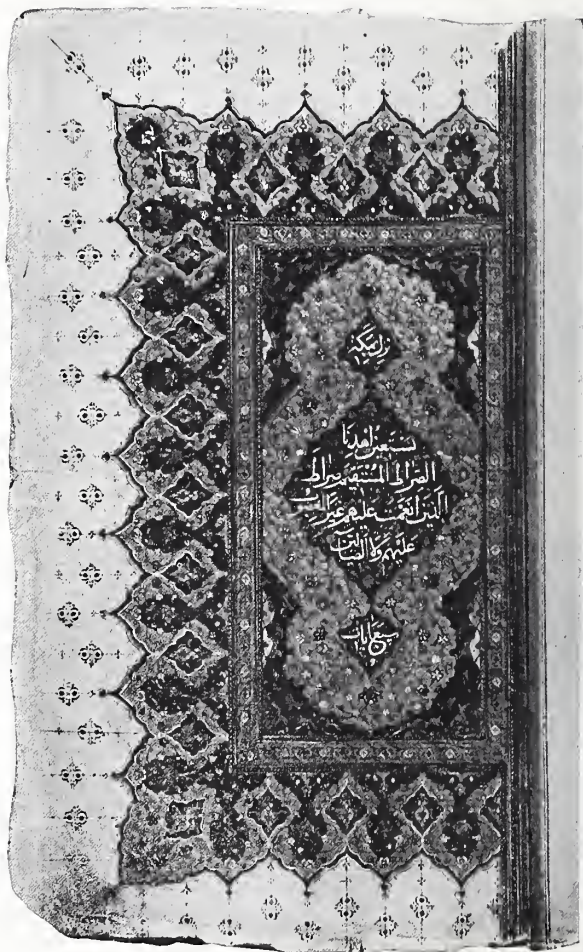 نستعين اهدنا
الصراط المستقيم صراط
الذين انعمت عليهم غير المغضوب
عليهم ولا الضالين
سبع آيات